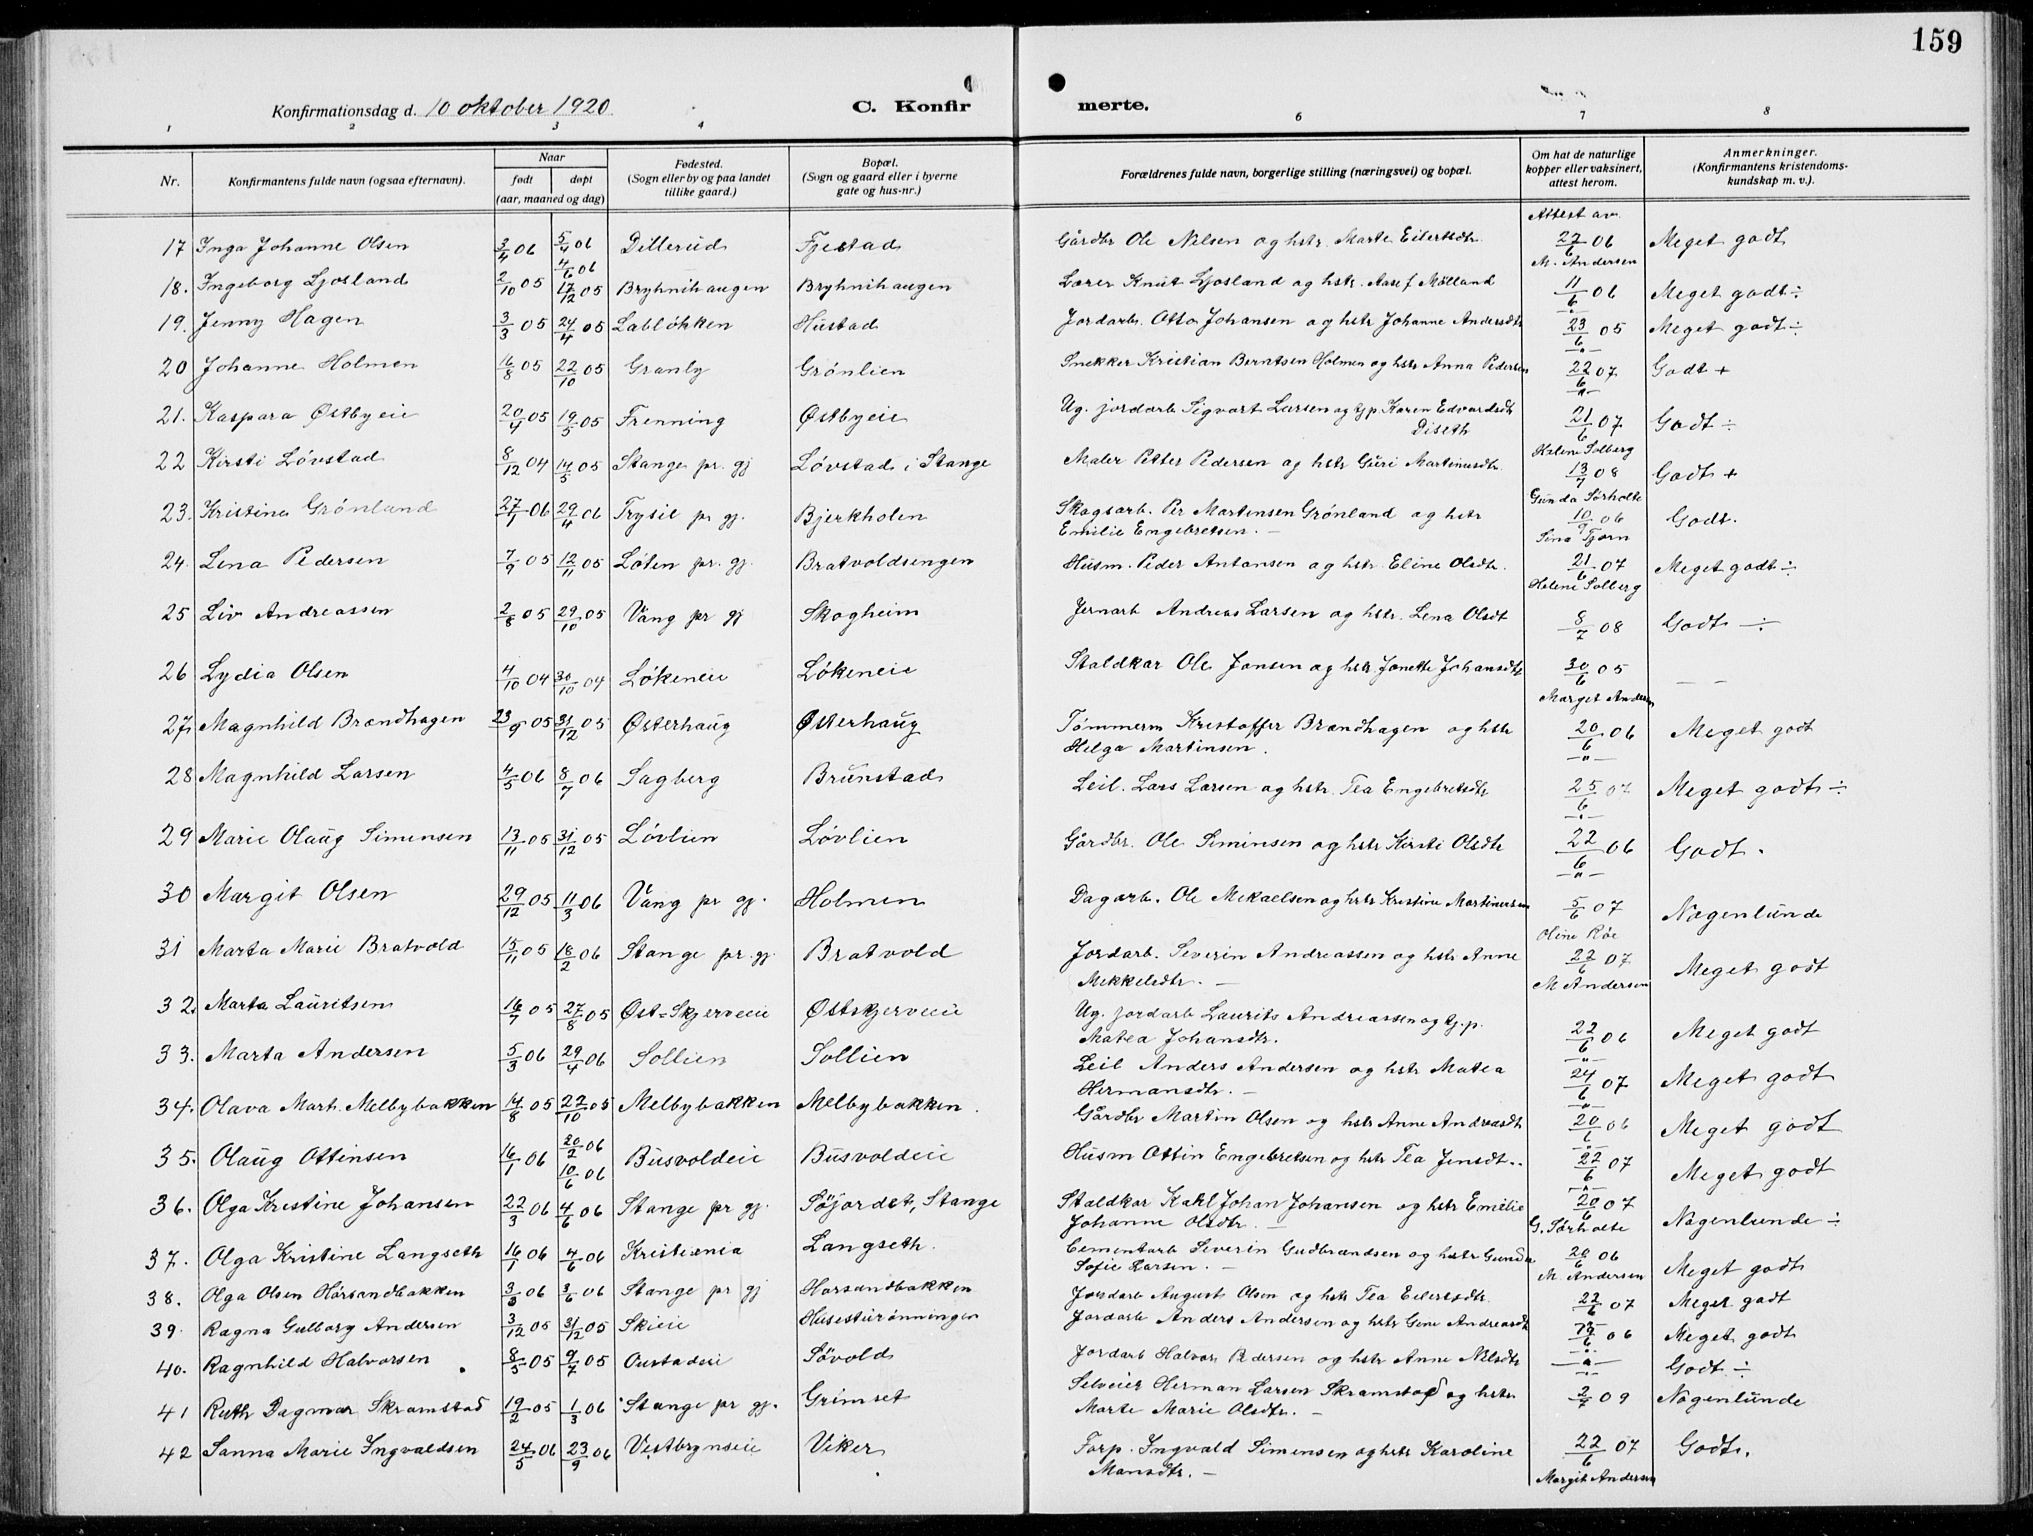 159
Konfirmationsdag d. 10 oktober 1920 C. Konfirmerte.
1 2 3 4 6 7 8
Nr. Konfirmantens fulde navn (ogsaa efternavn). Naar født døpt (aar, maaned og dag) Fødested. (Sogn eller by og paa landet tillike gaard.) Bopæl. (Sogn og gaard eller i byerne gate og hus-nr.) Forældrenes fulde navn, borgerlige stilling (næringsvei) og bopæl. Om hat de naturlige kopper eller vaksinert, attest herom. Anmerkninger. (Konfirmantens kristendoms-kundskap m. v.).
Attest av
17 Inga Johanne Olsen 3/4 06 5/4 06 4/6 06 Dillerud Fjestad Gårdbr Ole Nilsen og hstr. Marte Eilertsdtr. 22/6 06 M. Andersen Meget godt
18. Ingeborg Ljosland 2/10 05 17/12 05 Bryhnihaugen Bryhnihaugen Lærer Knut Ljosland og hstr. Aase f Mølland 11/6 06 Meget godt ÷
19. Jenny Hagen 3/3 05 24/4 05 Labløkken Hustad Jordarb. Otto Johansen og hstr Johanne Andersdtr 23/6 05 Meget godt ÷
20 Johanne Holmen 16/8 05 22/10 05 Granly Grønlien Snekker Kristian Berntsen Holmen og hstr Anna Pedersen 22/6 07 Godt +
21. Kaspara Østbyeie 20/4 05 19/5 05 Frenning Østbyeie Ug. jordarb Sigvart Larsen og tjp Karen Edvardsdtr Diseth 21/6 07 Helene Solberg Godt ÷
22 Kirsti Løvstad 8/12 04 14/5 05 Stange pr. gj Løvstad i Stange Maler Petter Pedersen og hstr Guri Martinusdtr. 13/7 08 Gunda Sørholte Godt +
23. Kristine Grønland 27/1 06 29/4 06 Trysil pr gj. Bjerkholen Skogsarb. Per Martensen Grønland og hstr Emilie Engebretsen. — 10/9 06 Sina Tjørn Godt.
24. Lena Pedersen 7/9 05 12/11 05 Løten pr. gj. Bratvoldsengen Husm. Peder Antonsen og hstr. Eline Olsdtr. 21/6 07 Helene Solberg Meget godt ÷
25 Liv Andreassen 2/8 05 29/10 05 Vang pr gj Skogheim Jernarb Andreas Larsen og hstr. Lena Olsdt 8/7 08 Godt ÷
26 Lydia Olsen 4/10 04 30/10 04 Løkeneie Løkeneie Staldkar Ole Jonsen og hstr Jonette Johansdtr 30/6 05 Marget Andersen — —
27. Magnhild Brændhagen 23/9 05 31/12 05 Østerhaug Østerhaug Tømmerm Kristoffer Brændhagen og hstr Helga Martinsen. 20/6 06 Meget godt
28 Magnhild Larsen 4/5 06 8/7 06 Sagberg Brunstad Leil. Lars Larsen og hstr. Tea Engebretsdtr 25/6 07 Meget godt ÷
29 Marie Olaug Simensen 13/11 05 31/12 05 Løvlien Løvlien Gårdbr. Ole Siminsen og hstr Kirsti Olsdtr 22/6 06 Godt.
30 Margit Olsen 29/12 05 11/3 06 Vang pr gj. Holmen Dagarb. Ole Mikaelsen og hstr Kristine Martinersen 5/6 07 Oline Røe Nogenlunde
31 Marta Marie Bratvold 15/11 05 18/2 06 Stange pr. gj. Bratvold Jordarb. Severin Andreassen og hstr Anne Mekkelsdtr. — 22/6 07 M Andersen Meget godt
32. Marta Lauritsen 16/7 05 27/8 05 Øst-Skjerveeie Østskjerveeie Ug. jordarb Laurits Andreassen og tj.p. Matea Johansdtr. 22/6 06 Meget godt
33. Marta Andersen 5/3 06 29/4 06 Sollien Sollien Leil Anders Andersen og hstr Matea Hermansdtr. — 24/6 07 Meget godt
34. Olava Mart. Melbybakken 14/8 05 22/10 05 Melbybakken Melbybakken. Gårdbr Martin Olsen og hstr Anne Andreasdt 20/6 06 Meget godt
35. Olaug Ottinsen 16/1 06 20/2 06 10/6 06 Busvoldeie Busvoldeie Husm Ottin Engebretsen og hstr Tea Jensdt.. 22/6 07 Meget godt
36. Olga Kristine Johansen 22/3 06 4/6 06 Stange pr gj. Søjordet, Stange Staldkar Kahl Johan Johansen og hstr Emilie Johanne Olsdtr. — 20/6 07 G. Sørholte Nogenlunde ÷
37. Olga Kristine Langseth 16/1 06 4/6 06 Kristiania Langseth. Cementarb Severin Gudbrandsen og hstr Gunda Sofie Larsen. — 20/6 06 M. Andersen Meget godt
38. Olga Olsen Horsandbakken 3/3 06 3/6 06 Stange pr gj Horsandbakken Jordarb August Olsen og hstr Tea Eilertsdtr. 22/6 07 Meget godt
39. Ragna Gulborg Andersen 3/12 05 31/12 05 Skieie Husesturønningen Jordarb Anders Andersen og hstr Gine Andreasdt 06 Meget godt
40. Ragnhild Halvorsen 8/5 05 9/7 05 Oustadeie Søvold Jordarb Halvor Pedersen og hstr Anne Nilsdtr Godt ÷
41 Ruth Dagmar Skramstad 19/2 05 1/3 06 Stange pr gj. Grimset Selveier Herman Larsen Skramstad og hstr Marte Marie Olsdtr. — 2/7 09 Nogenlunde
42 Sanna Marie Ingvaldsen 24/5 06 23/9 06 Vestbrynseie Viker Forp. Ingvald Simensen og hstr Karoline Monsdtr. — 22/6 07 Margit Andersen Godt.